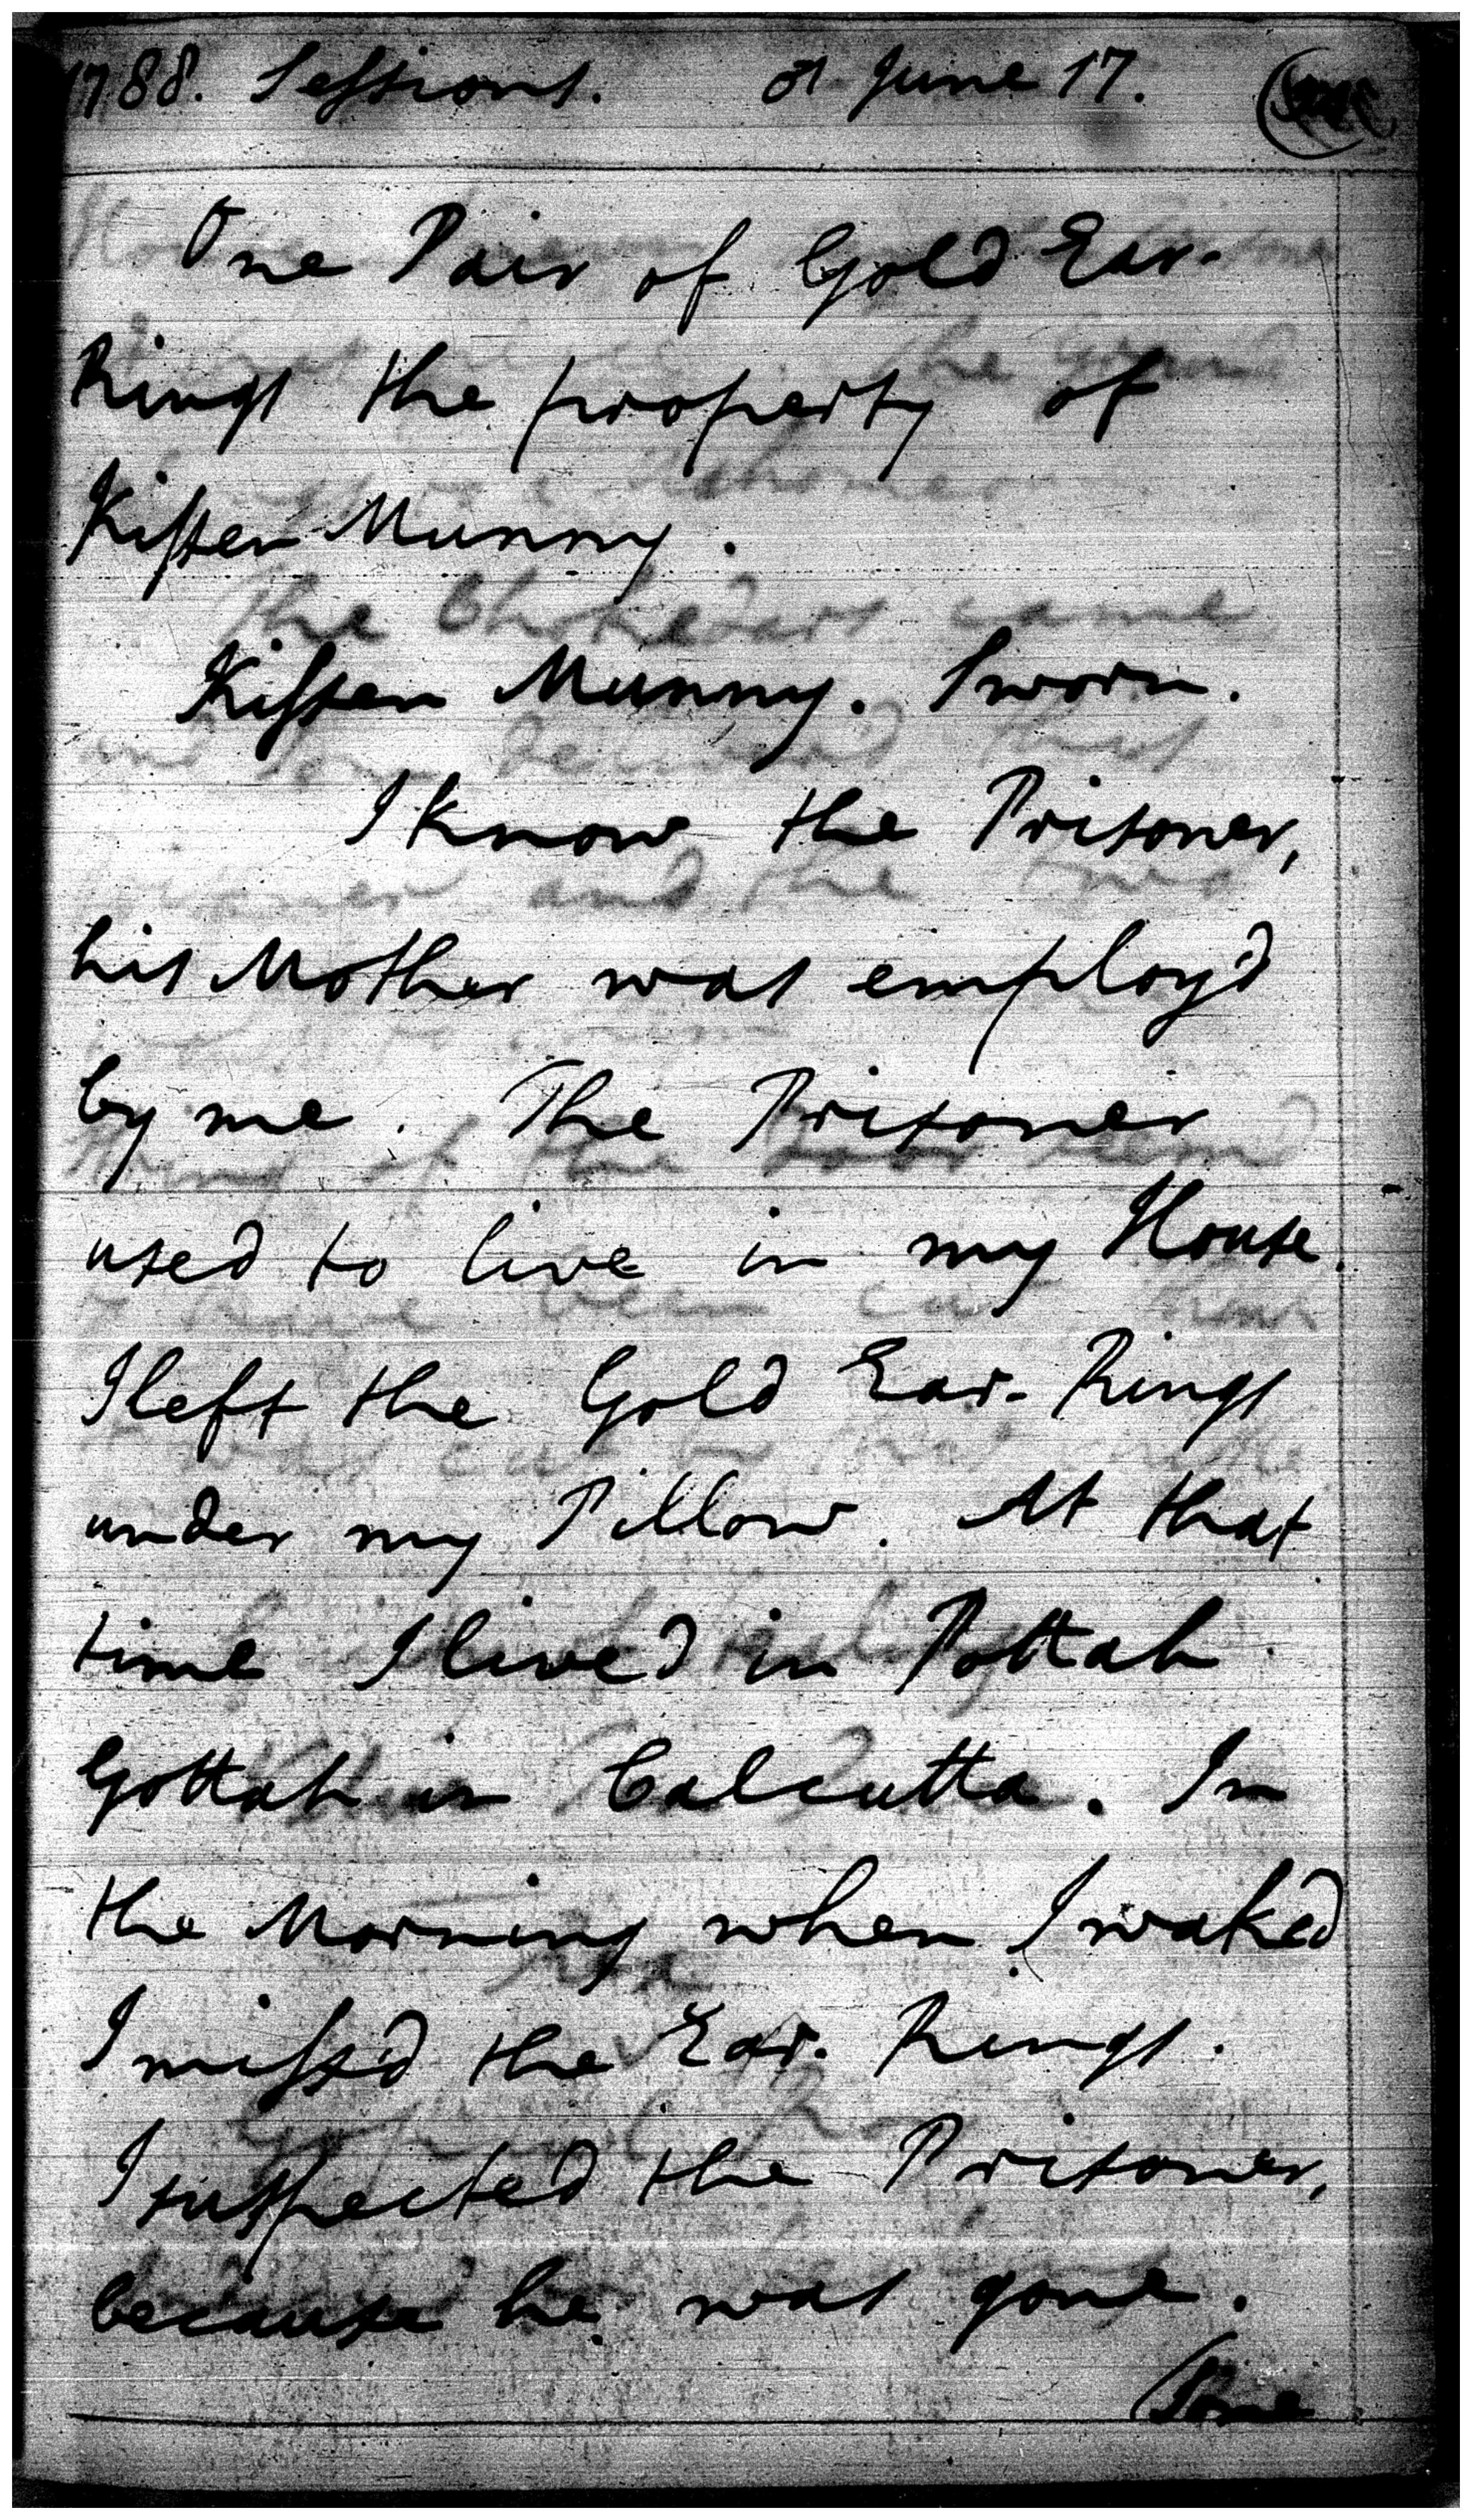 1788. Sessions. June 17.
One Pair of Gold Ear-
Rings the property of
Kissen Munny.
Kissen Munny. Sworn.
I know the Prisoner,
his Mother was employ'd
by me. The Prisoner
used to live in my House.
I left the Gold Ear-Rings
under my Pillow. At that
time I lived in Pottah
Gottah in Calcutta. In
the Morning when I waked
I miss'd the Ear-Rings.
I suspected the Prisoner,
because he was gone.
Some